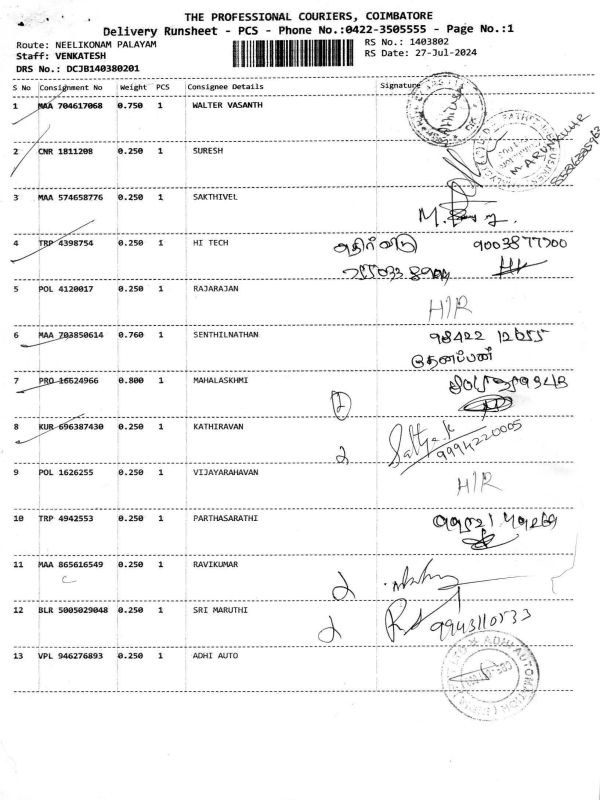 THE PROFESSIONAL COURIERS, COIMBATORE
Delivery Runsheet - PCS - Phone No.:0422-3505555 - Page No.:1
Route: NEELIKONAM PALAYAM
RS No.: 1403802
Staff: VENKATESH
RS Date: 27-Jul-2024
DRS No.: DCJB140380201
S No Consignment No Weight PCS Consignee Details Signature
1 MAA 704617068 0.750 1 WALTER VASANTH
2 CNR 1811208 0.250 1 SURESH
M. ARUN KUMAR
3 MAA 574658776 0.250 1 SAKTHIVEL
4 TRP 4398754 0.250 1 HI TECH
எதிர்வீடு 9003877500
5 POL 4120017 0.250 1 RAJARAJAN
H/R
6 MAA 703850614 0.760 1 SENTHILNATHAN
98422 12655
தேனப்பன்
7 PRO 16624966 0.800 1 MAHALASKHMI
2
8 KUR 696387430 0.250 1 KATHIRAVAN
2 Sathya.k
9994220005
9 POL 1626255 0.250 1 VIJAYARAHAVAN
H/R
10 TRP 4942553 0.250 1 PARTHASARATHI
11 MAA 865616549 0.250 1 RAVIKUMAR
2
12 BLR 5005029048 0.250 1 SRI MARUTHI
2 9943110533
13 VPL 946276893 0.250 1 ADHI AUTO
ADHI AUTOMATION